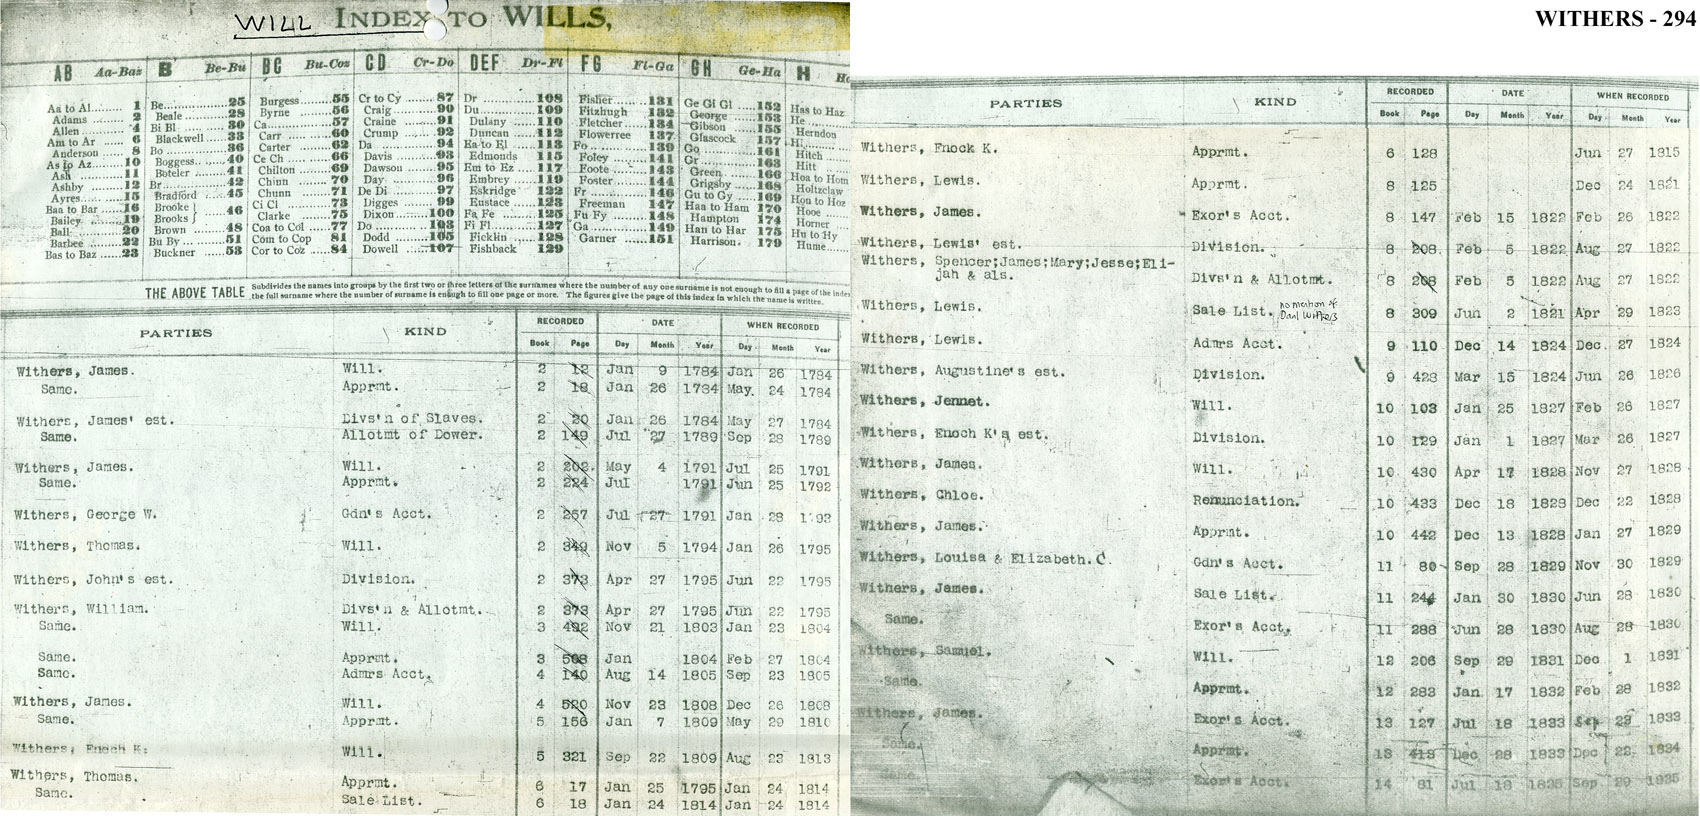 WILL INDEX TO WILLS,
WITHERS - 294
AB Aa-Baz B Be-Bu BC Bu-Coz CD Cr-Do DEF Dr-Fl FG Fl-Ga GH Ge-Ha H
Aa to Al 1 Be 25 Burgess 55 Cr to Cy 87 Dr 108 Fisher 131 Ge Gl Gl 152 Has to Haz
Adams 2 Beale 28 Byrne 56 Craig 90 Du 109 Fitzhugh 132 George 153 He
Allen 4 Bi Bl 30 Ca 57 Craine 91 Dulany 110 Fletcher 134 Gibson 155 Herndon
Am to Ar 6 Blackwell 33 Carr 60 Crump 92 Duncan 112 Flowerree 137 Glascock 157 Hi
Anderson 8 Bo 36 Carter 62 Da 94 Ea to El 113 Fo 139 Go 161 Hitch
As to Az 10 Boggess 40 Ce Ch 66 Davis 93 Edmonds 115 Foley 141 Gr 163 Hitt
Ash 11 Boteler 41 Chilton 69 Dawson 95 Em to Ez 117 Foote 143 Green 166 Hoa to Hom
Ashby 12 Br 42 Chinn 70 Day 96 Embrey 119 Foster 144 Grigsby 168 Holtzclaw
Ayres 15 Bradford 45 Chunn 71 De Di 97 Eskridge 122 Fr 146 Gu to Gy 169 Hon to Hoz
Baa to Bar 16 Brooke } 46 Ci Cl 73 Digges 99 Eustace 123 Freeman 147 Haa to Ham 170 Hooe
Bailey 19 Brooks } Clarke 75 Dixon 100 Fa Fe 125 Fu Fy 148 Hampton 174 Horner
Ball 20 Brown 48 Coa to Col 77 Do 103 Fi Fl 127 Ga 149 Han to Har 175 Hu to Hy
Barbee 22 Bu By 51 Com to Cop 81 Dodd 105 Ficklin 128 Garner 151 Harrison 179 Hume
Bas to Baz 23 Buckner 53 Cor to Coz 84 Dowell 107 Fishback 129
THE ABOVE TABLE Subdivides the names into groups by the first two or three letters of the surnames where the number of any one surname is not enough to fill a page of the index
the full surname where the number of surname is enough to fill one page or more. The figures give the page of this index in which the name is written.
PARTIES KIND RECORDED DATE WHEN RECORDED
Book Page Day Month Year Day Month Year
Withers, James. Will. 2 12 Jan 9 1784 Jan 26 1784
Same. Apprmt. 2 18 Jan 26 1784 May. 24 1784
Withers, James' est. Divs'n of Slaves. 2 20 Jan 26 1784 May 27 1784
Same. Allotmt of Dower. 2 149 Jul 27 1789 Sep 28 1789
Withers, James. Will. 2 202. May 4 1791 Jul 25 1791
Same. Apprmt. 2 224 Jul 1791 Jun 25 1792
Withers, George W. Gdn's Acct. 2 257 Jul 27 1791 Jan 28
Withers, Thomas. Will. 2 349 Nov 5 1794 Jan 26 1795
Withers, John's est. Division. 2 373 Apr 27 1795 Jun 22 1795
Withers, William. Divs'n & Allotmt. 2 373 Apr 27 1795 Jun 22 1795
Same. Will. 3 492 Nov 21 1803 Jan 23 1804
Same. Apprmt. 3 508 Jan 1804 Feb 27 1804
Same. Admrs Acct. 4 140 Aug 14 1805 Sep 23 1805
Withers, James. Will. 4 520 Nov 23 1808 Dec 26 1808
Same. Apprmt. 5 156 Jan 7 1809 May 29 1810
Withers, Enoch K. Will. 5 321 Sep 22 1809 Aug 23 1813
Withers, Thomas. Apprmt. 6 17 Jan 25 1795 Jan 24 1814
Same. Sale List. 6 18 Jan 24 1814 Jan 24 1814
PARTIES KIND RECORDED DATE WHEN RECORDED
Book Page Day Month Year Day Month Year
Withers, Enock K. Apprmt. 6 128 Jun 27 1815
Withers, Lewis. Apprmt. 8 125 Dec 24 1821
Withers, James. Exor's Acct. 8 147 Feb 15 1822 Feb 26 1822
Withers, Lewis' est. Division. 8 208 Feb 5 1822 Aug 27 1822
Withers, Spencer;James;Mary;Jesse;Eli-
jah & als. Divs'n & Allotmt. 8 208 Feb 5 1822 Aug 27 1822
Withers, Lewis. Sale List. no mention of Danl Withers 8 309 Jun 2 1821 Apr 29 1823
Withers, Lewis. Admrs Acct. 9 110 Dec 14 1824 Dec. 27 1824
Withers, Augustine's est. Division. 9 423 Mar 15 1824 Jun 26 1826
Withers, Jennet. Will. 10 103 Jan 25 1827 Feb 26 1827
Withers, Enoch K's est. Division. 10 129 Jan 1 1827 Mar 26 1827
Withers, James. Will. 10 430 Apr 17 1828 Nov 27 1828
Withers, Chloe. Renunciation. 10 433 Dec 18 1828 Dec 22 1828
Withers, James. Apprmt. 10 442 Dec 13 1828 Jan 27 1829
Withers, Louisa & Elizabeth. C. Gdn's Acct. 11 80 Sep 28 1829 Nov 30 1829
Withers, James. Sale List. 11 244 Jan 30 1830 Jun 28 1830
Same. Exor's Acct. 11 288 Jun 28 1830 Aug 28 1830
Withers, Samuel. Will. 12 206 Sep 29 1831 Dec 1 1831
Same. Apprmt. 12 283 Jan 17 1832 Feb 28 1832
Withers, James. Exor's Acct. 13 127 Jul 18 1833 Sep 23 1833
Same. Apprmt. 13 413 Dec 28 1833 Dec 22. 1834
Same. Exor's Acct. 14 81 Jul 18 1835 Sep 29 1835